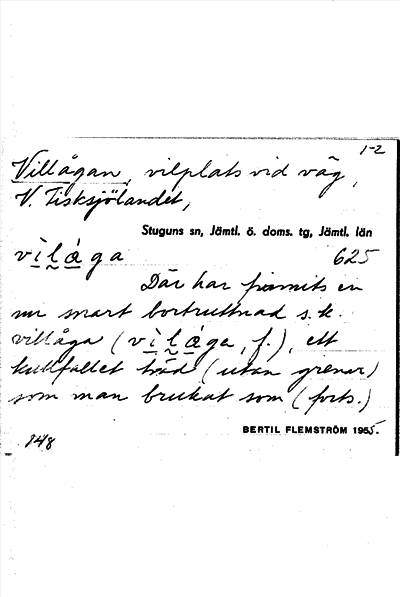 1-2
Villågan, vilplats vid väg,
V. Tisksjölandet,
Stuguns sn, Jämtl. ö. doms. tg, Jämtl. län
vìḷåga 625
Där har funnits en
nu snart bortruttnad s.k.
villåga (vìḷåga, f.), ett
kullfallet träd (utan grenar)
som man brukat som (forts.)
BERTIL FLEMSTRÖM 1955.
848